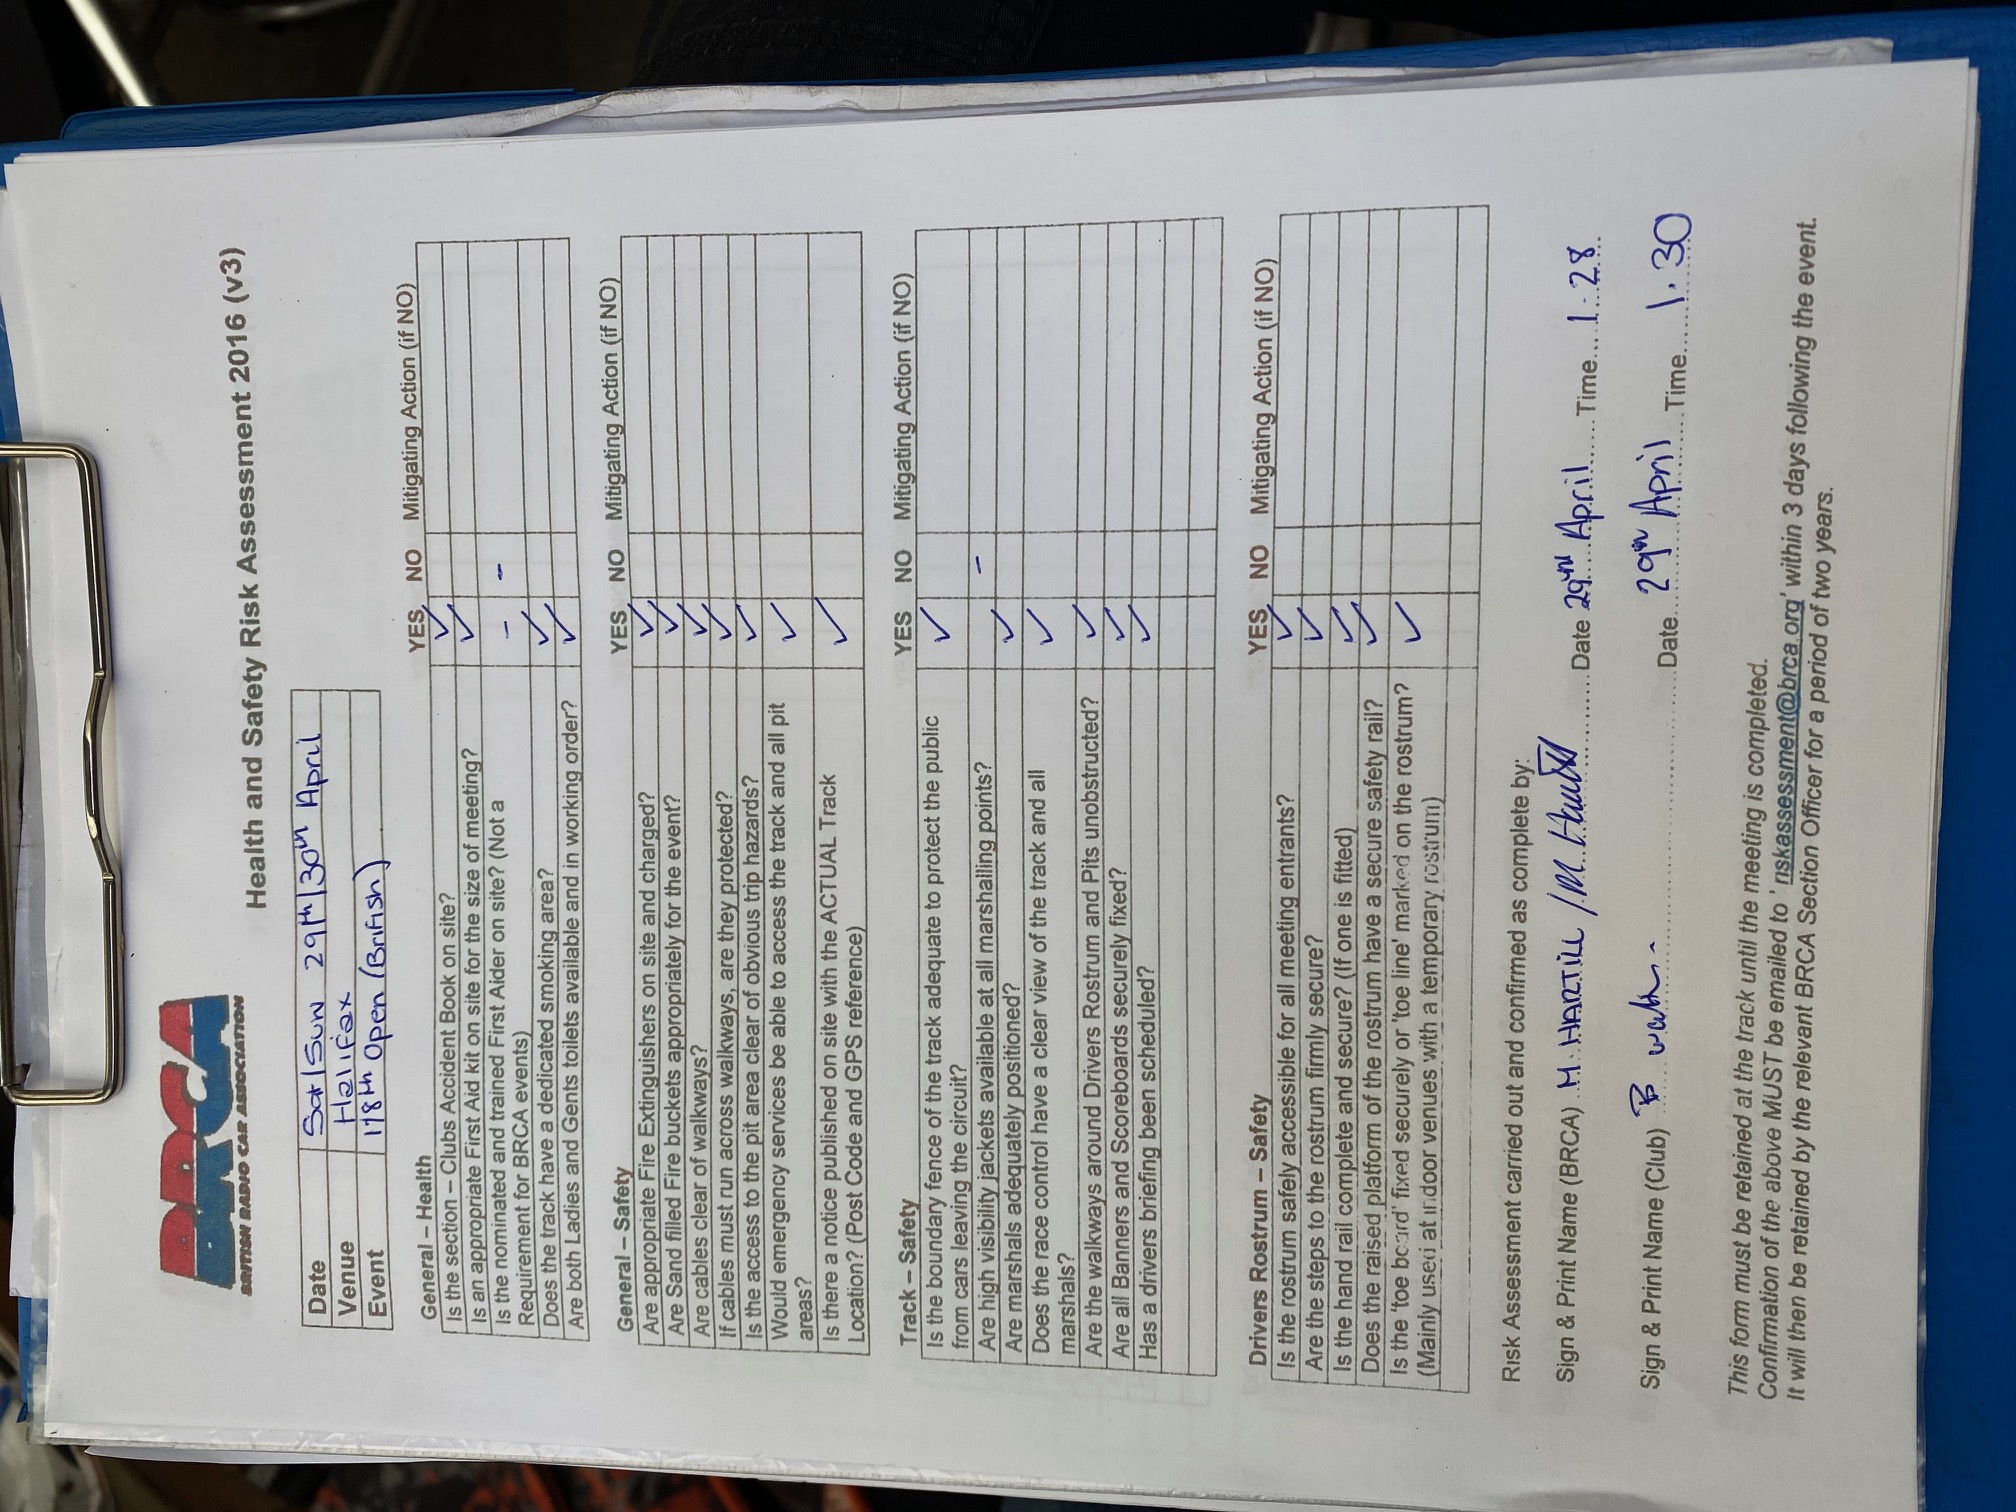 BRCA
BRITISH RADIO CAR ASSOCIATION
Health and Safety Risk Assessment 2016 (v3)
Date Sat/Sun 29th/30th April
Venue Halifax
Event 1/8th Open (British)
General – Health YES NO Mitigating Action (if NO)
Is the section – Clubs Accident Book on site? ✓
Is an appropriate First Aid kit on site for the size of meeting? ✓
Is the nominated and trained First Aider on site? (Not a - -
Requirement for BRCA events)
Does the track have a dedicated smoking area? ✓
Are both Ladies and Gents toilets available and in working order? ✓
General – Safety YES NO Mitigating Action (if NO)
Are appropriate Fire Extinguishers on site and charged? ✓
Are Sand filled Fire buckets appropriately for the event? ✓
Are cables clear of walkways? ✓
If cables must run across walkways, are they protected? ✓
Is the access to the pit area clear of obvious trip hazards? ✓
Would emergency services be able to access the track and all pit ✓
areas?
Is there a notice published on site with the ACTUAL Track ✓
Location? (Post Code and GPS reference)
Track – Safety YES NO Mitigating Action (if NO)
Is the boundary fence of the track adequate to protect the public ✓
from cars leaving the circuit?
Are high visibility jackets available at all marshalling points? -
Are marshals adequately positioned? ✓
Does the race control have a clear view of the track and all ✓
marshals?
Are the walkways around Drivers Rostrum and Pits unobstructed? ✓
Are all Banners and Scoreboards securely fixed? ✓
Has a drivers briefing been scheduled? ✓
Drivers Rostrum – Safety YES NO Mitigating Action (if NO)
Is the rostrum safely accessible for all meeting entrants? ✓
Are the steps to the rostrum firmly secure? ✓
Is the hand rail complete and secure? (If one is fitted) ✓
Does the raised platform of the rostrum have a secure safety rail? ✓
Is the 'toe board' fixed securely or 'toe line' marked on the rostrum? ✓
(Mainly used at indoor venues with a temporary rostrum)
Risk Assessment carried out and confirmed as complete by:
Sign & Print Name (BRCA) M. HARTILL / M Date 29th April Time 1.28
Sign & Print Name (Club) B Date 29th April Time 1.30
This form must be retained at the track until the meeting is completed.
Confirmation of the above MUST be emailed to 'riskassessment@brca.org' within 3 days following the event.
It will then be retained by the relevant BRCA Section Officer for a period of two years.